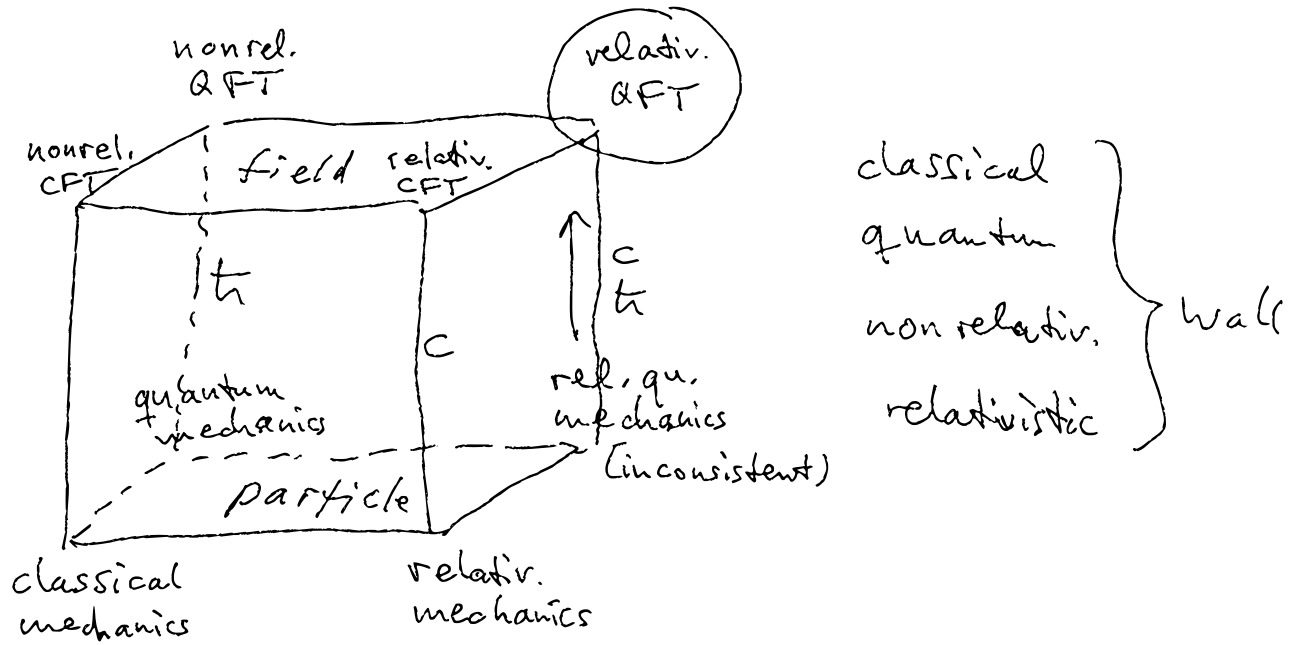 nonrel.
QFT
relativ.
QFT
nonrel.
CFT
field
relativ.
CFT
ħ
c
c
ħ
quantum
mechanics
rel. qu.
mechanics
(inconsistent)
particle
classical
mechanics
relativ.
mechanics
classical
quantum
nonrelativ.
relativistic
wall